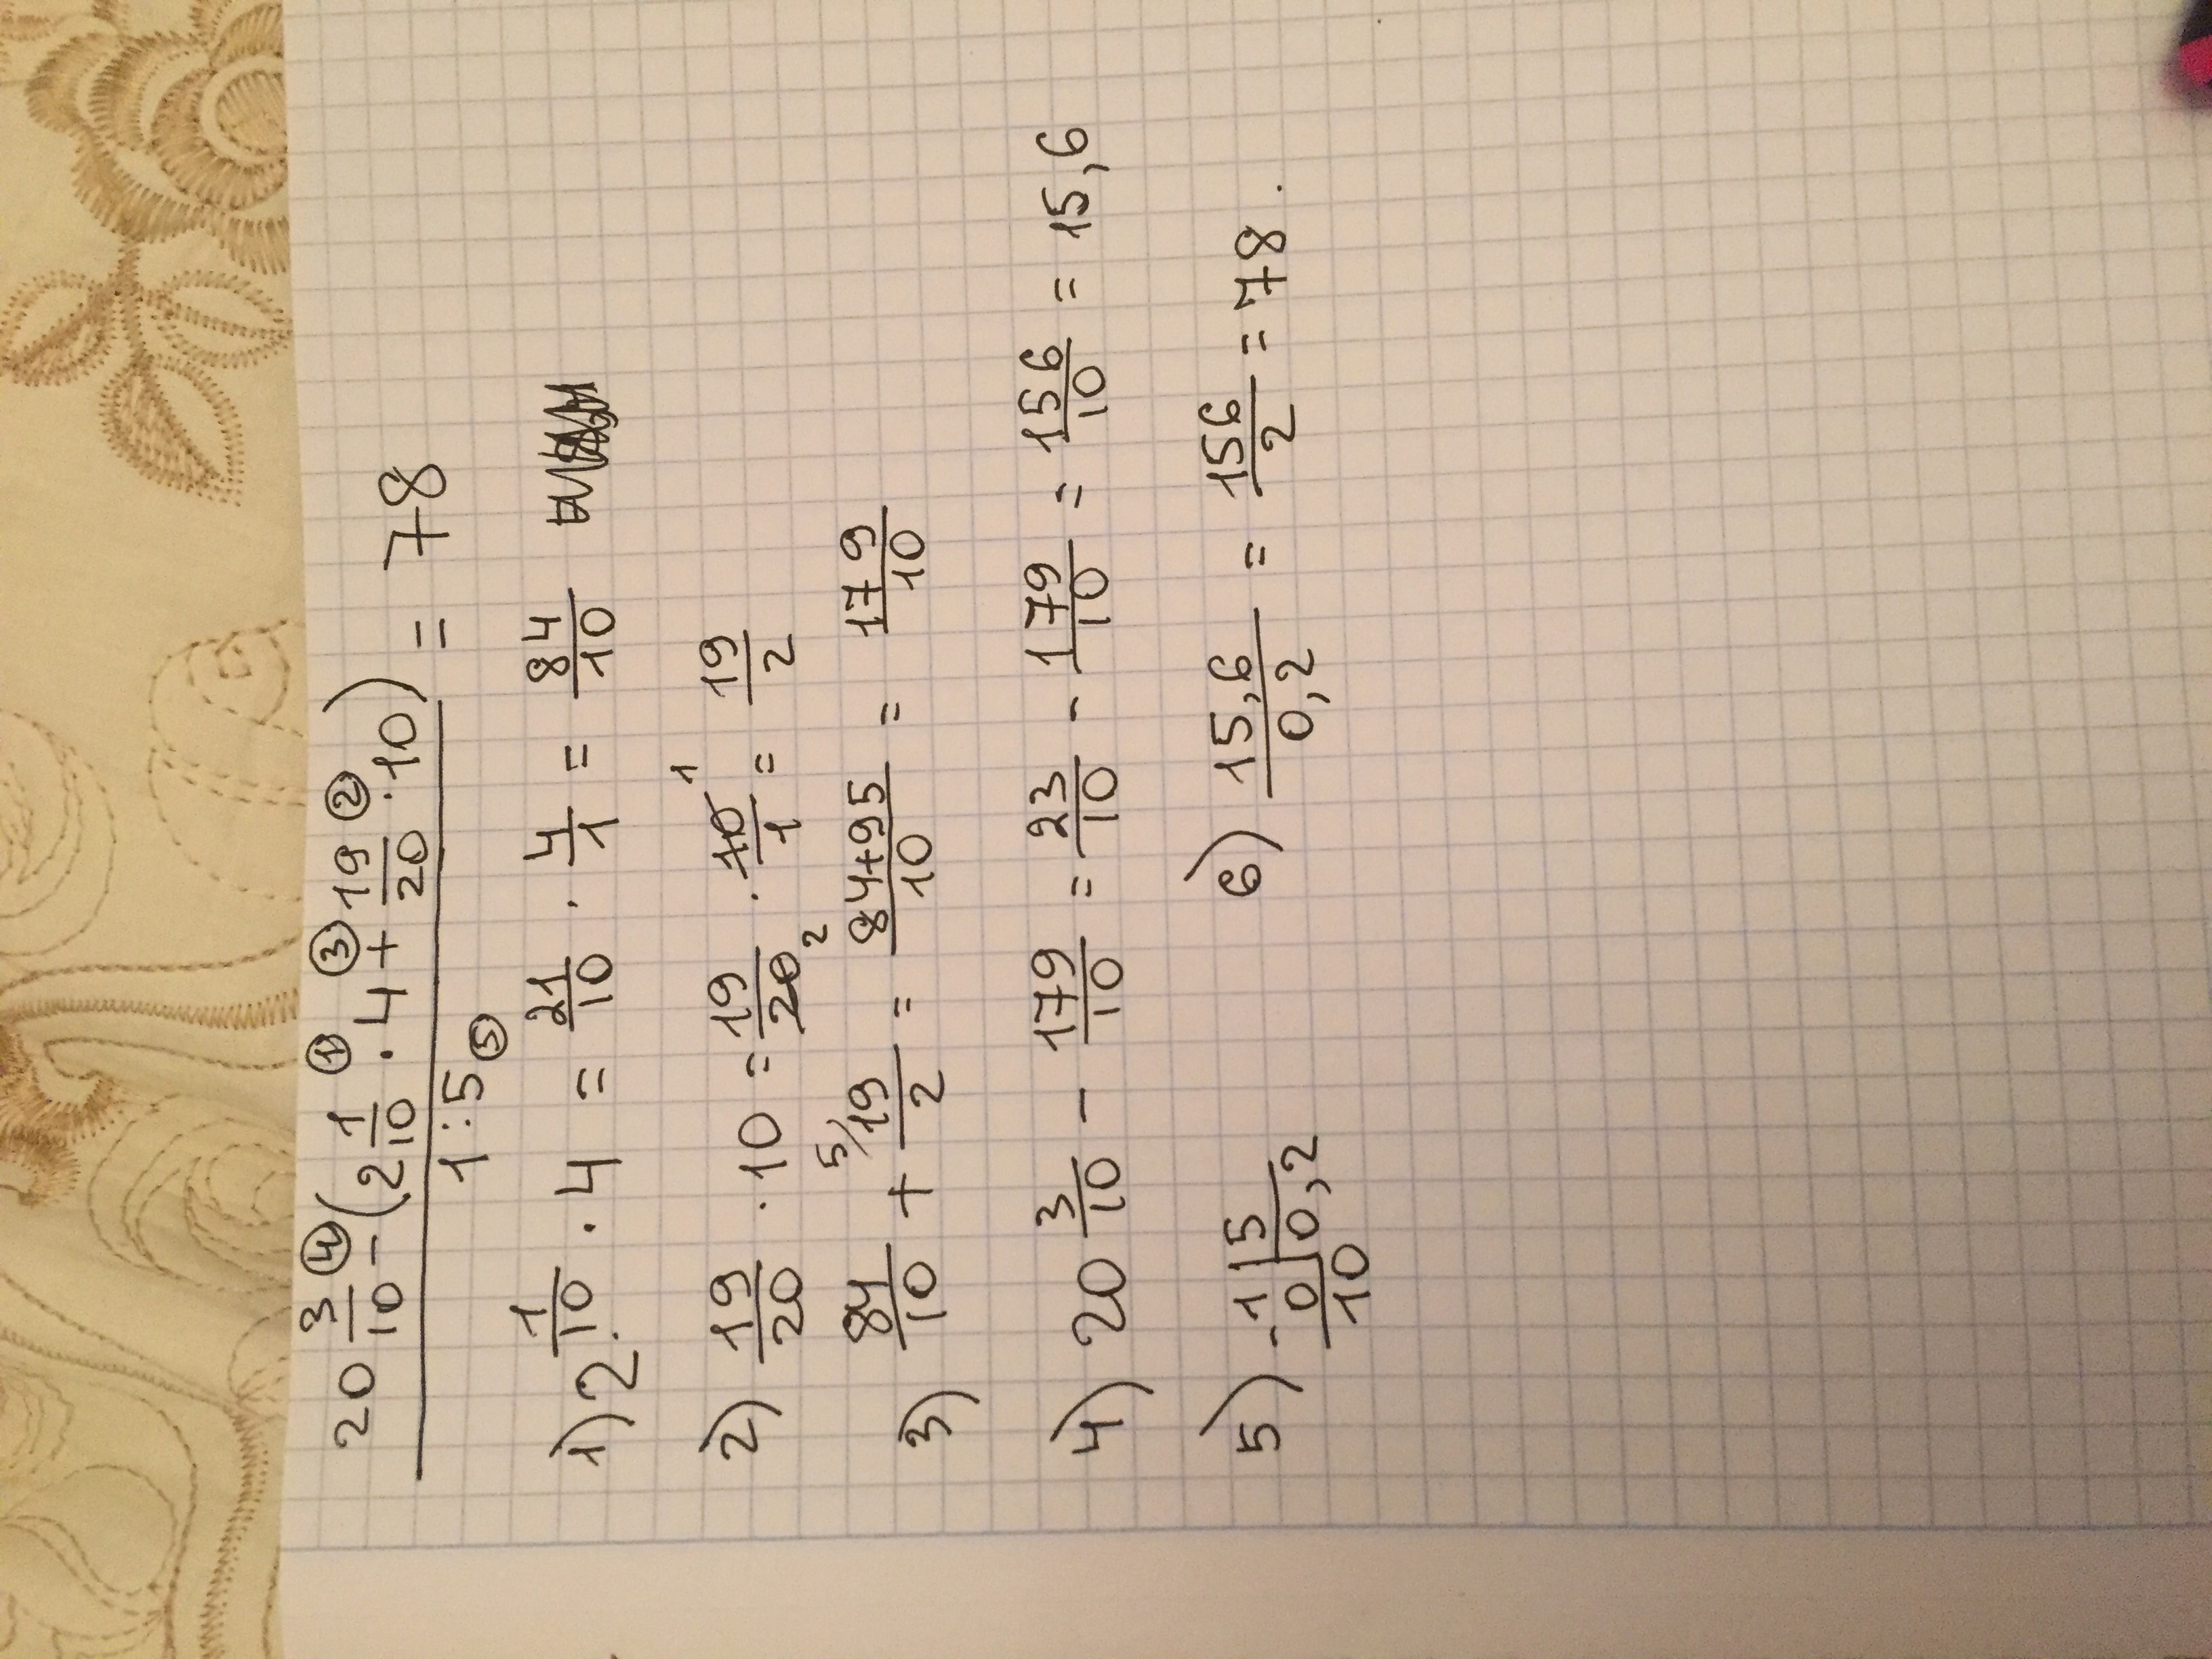 20 3/10 ④ - (2 1/10 ① · 4 ③ + 19/20 ② · 10) = 78
1 : 5 ⑤
1) 2 1/10 · 4 = 21/10 · 4/1 = 84/10
2) 19/20 · 10 = 19/20 2 · 10/1 1 = 19/2
3) 84/10 + 5/ 19/2 = 84+95/10 = 179/10
4) 20 3/10 - 179/10 = 23/10 - 179/10 = 156/10 = 15,6
5) - 1 | 5 6) 15,6/0,2 = 156/2 = 78.
0 | 0,2
10